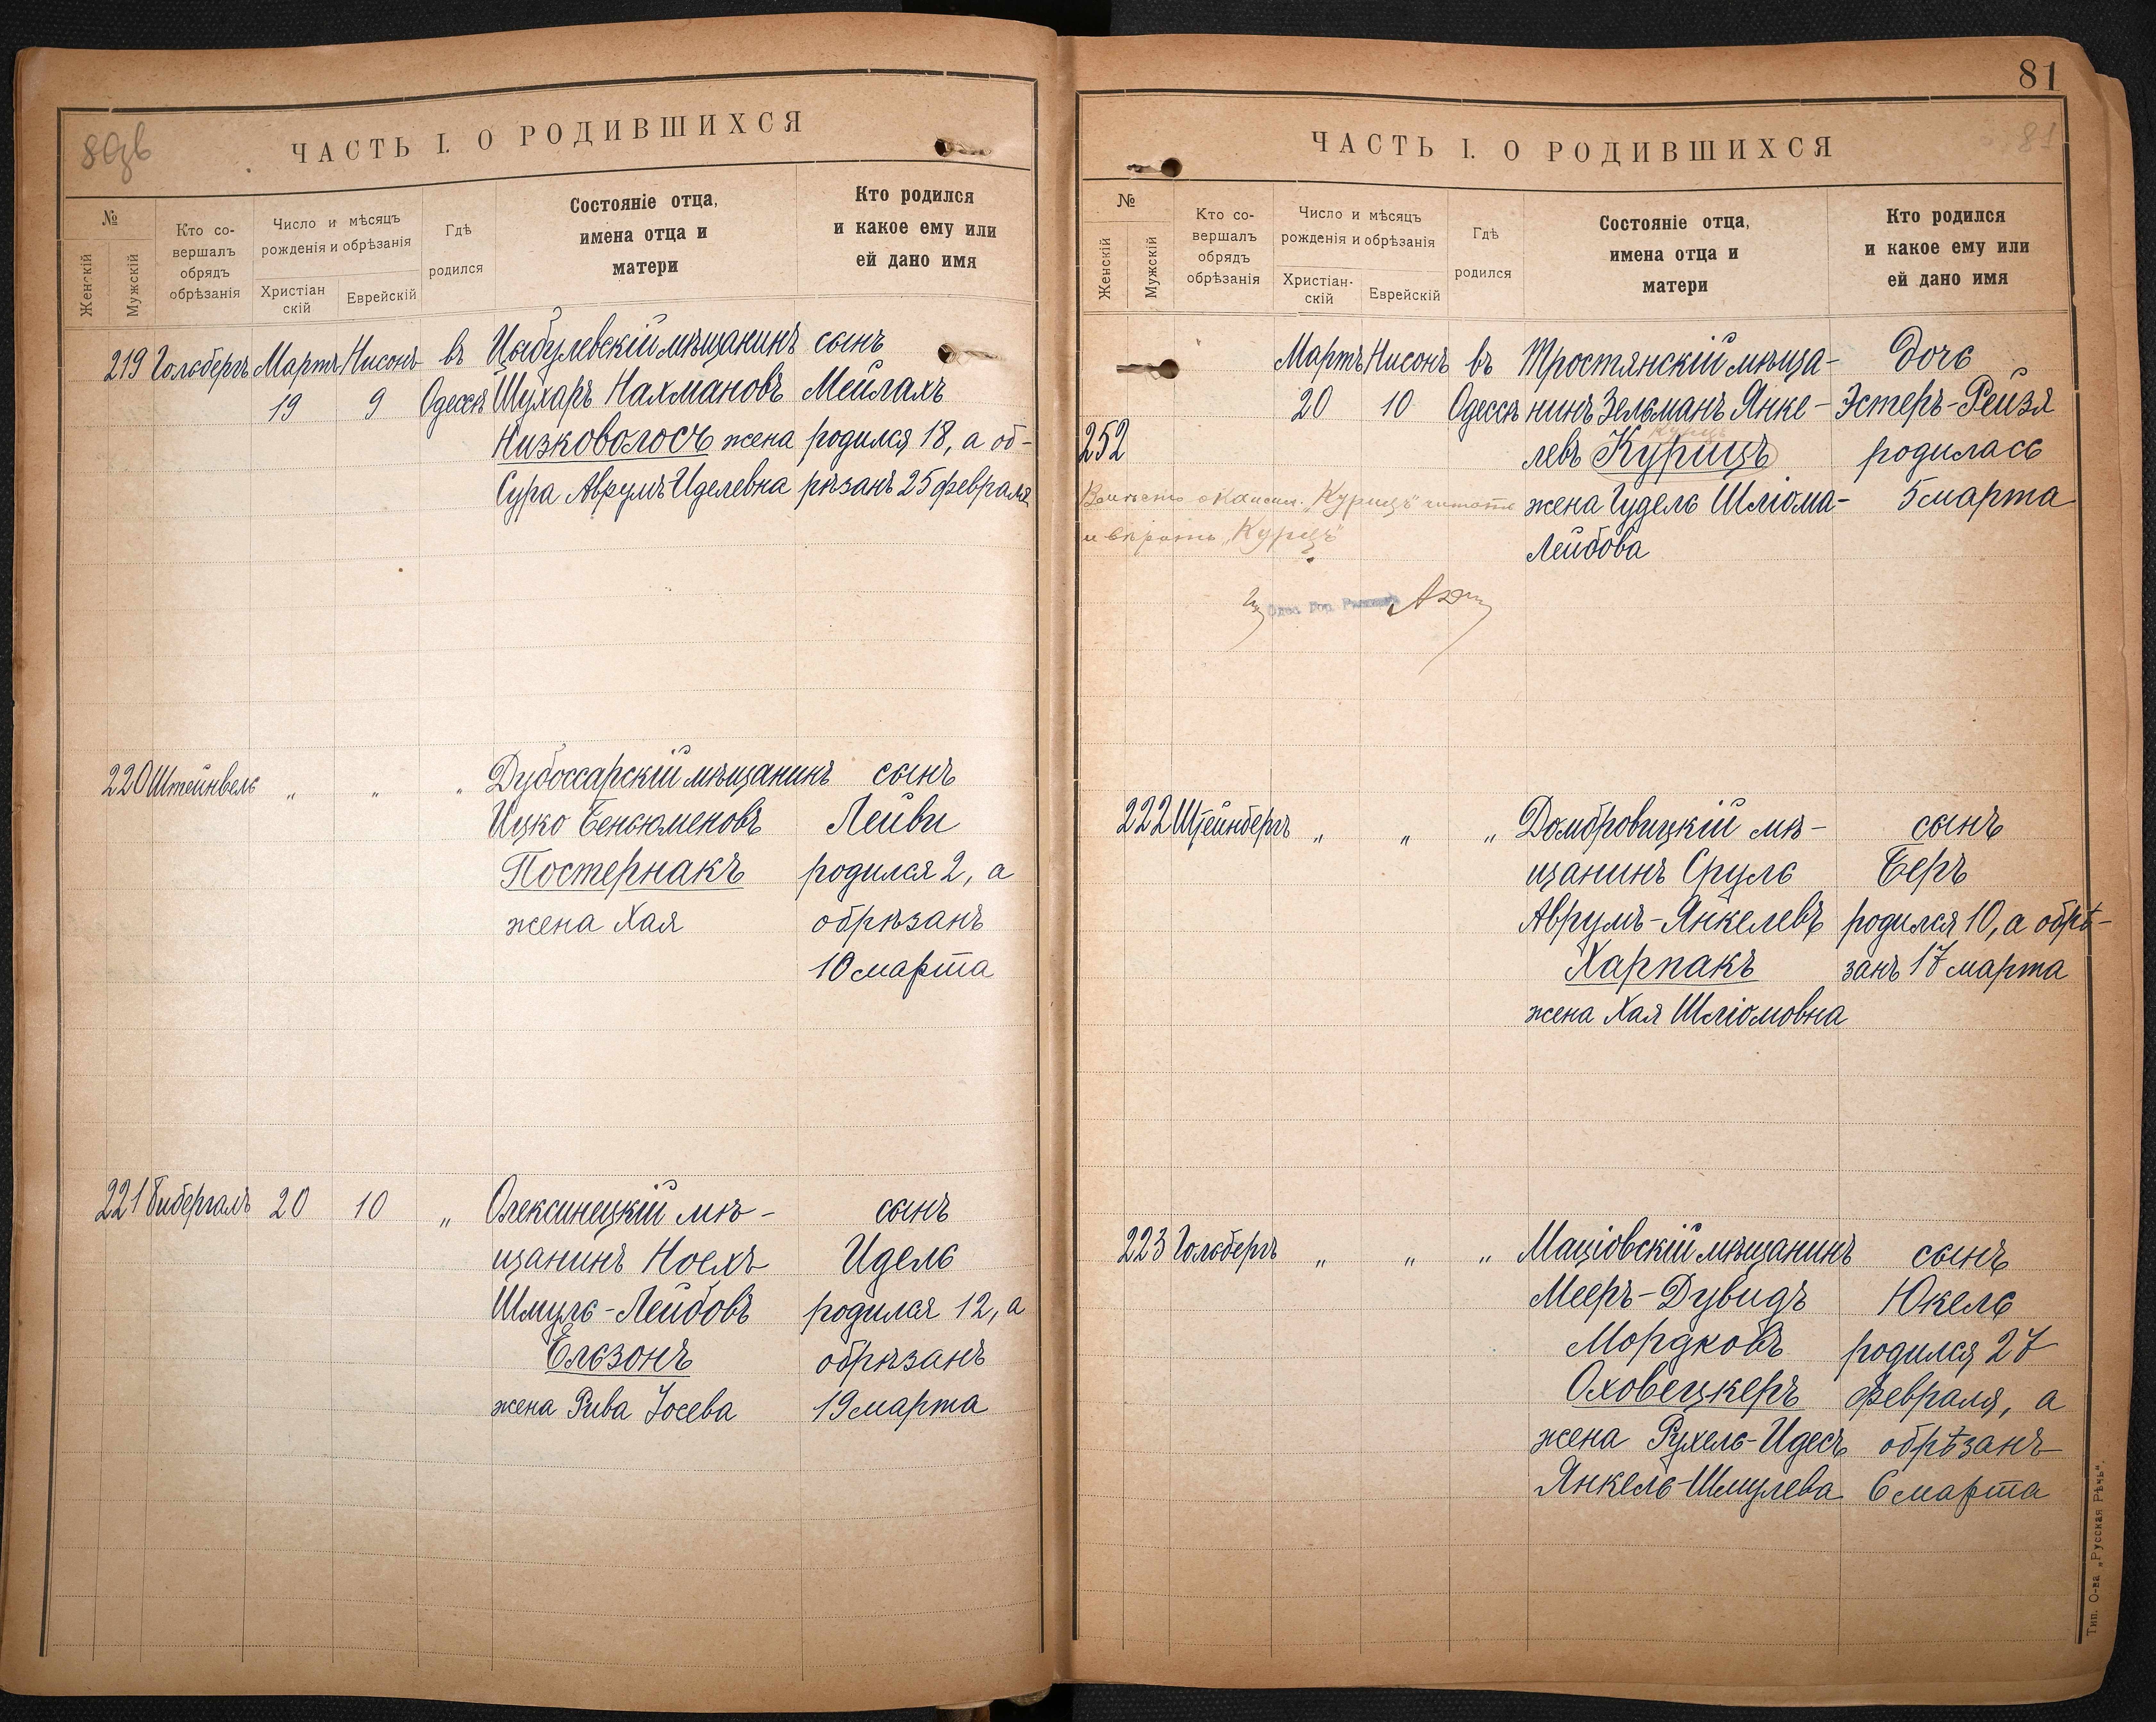 80об
ЧАСТЬ I. О РОДИВШИХСЯ
№
Женскій
Мужскій
Кто со-
вершалъ
обрядъ
обрѣзанія
Число и мѣсяцъ
рожденія и обрѣзанія
Христіан
скій
Еврейскій
Гдѣ
родился
Состояніе отца,
имена отца и
матери
Кто родился
и какое ему или
ей дано имя
219 Гольбергъ Мартъ Нисонъ въ Цыбулевскій мѣщанинъ сынъ
19 9 Одессѣ Шухаръ Нахмановъ Мейлахъ
Низковолосъ жена родился 18, а об-
Сура Аврумъ Иделевна рѣзанъ 25 февраля
220 Штейнвель " " " Дубоссарскій мѣщанинъ сынъ
Ицко Беньюменовъ Лейви
Постернакъ родился 2, а
жена Хая обрѣзанъ
10 марта
221 Бибергалъ 20 10 " Олексинецкій мѣ- сынъ
щанинъ Ноехъ Идель
Шмуль-Лейбовъ родился 12, а
Ельзонъ обрѣзанъ
жена Рива Іосева 19 марта
81
81
ЧАСТЬ I. О РОДИВШИХСЯ
№
Женскій
Мужскій
Кто со-
вершалъ
обрядъ
обрѣзанія
Число и мѣсяцъ
рожденія и обрѣзанія
Христіан-
скій
Еврейскій
Гдѣ
родился
Состояніе отца,
имена отца и
матери
Кто родился
и какое ему или
ей дано имя
Мартъ Нисонъ въ Тростянскій мѣща- дочь
20 10 Одессѣ нинъ Зельманъ Янке- Эстеръ-Рейзя
Курцъ
252 левъ Курицъ родилась
Вмѣсто "Курицъ" читать жена Гудель Шліома- 5 марта
и вѣрить "Курцъ" Лейбова
Одес. Гор. Раввинъ
222 Штейнбергъ " " " Домбровицкій мѣ- сынъ
щанинъ Сруль Беръ
Аврумъ-Янкелевъ родился 10, а обрѣ-
Харпакъ занъ 17 марта
жена Хая Шліомовна
223 Гольбергъ " " " Маціовскій мѣщанинъ сынъ
Мееръ-Дувидъ Юкель
Мордковъ родился 27
Оховецкеръ февраля, а
жена Рухель-Идесъ обрѣзанъ
Янкель-Шмулева 6 марта
Тип. О-ва „Русская Рѣчь".